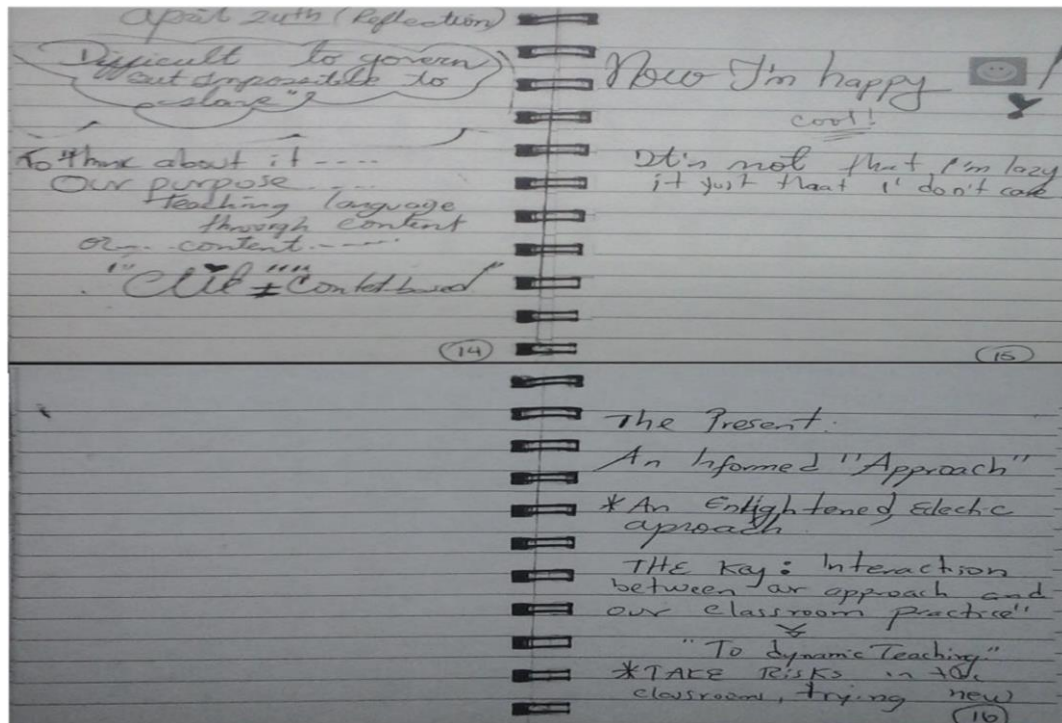 April 24th (Reflection)
"Difficult to govern
but impossible to
slave"
To think about it ....
Our purpose ....
teaching language
through content
or... content.....
"Clil" ≠ "Contet based"
14
Now I'm happy !
cool!
It's not that I'm lazy
it just that I don't care
15
The Present.
An Informed "Approach"
*An Enlightened, Eclectic
aproach
THE Key: Interaction
between our approach and
our classroom practice"
"To dynamic Teaching"
*TAKE Risks in the
classroom, trying new
16